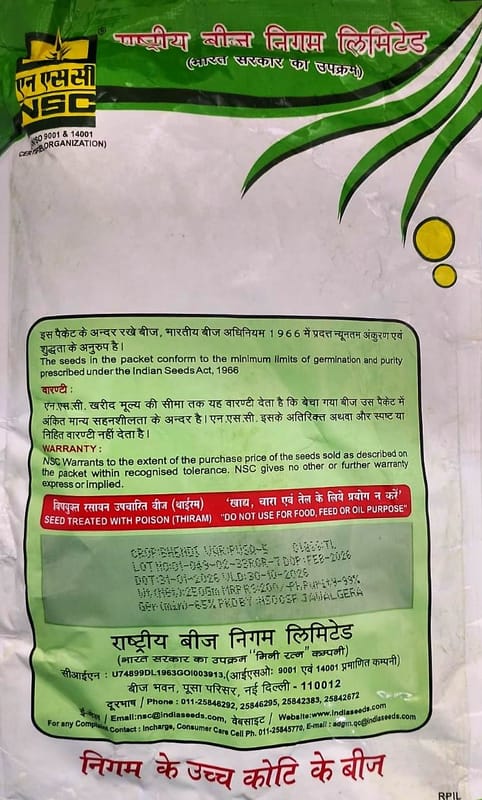 एन एस सी
NSC
®
(ISO 9001 & 14001
CERTIFIED ORGANIZATION)
राष्ट्रीय बीज निगम लिमिटेड
(भारत सरकार का उपक्रम)
इस पैकेट के अन्दर रखे बीज, भारतीय बीज अधिनियम 1966 में प्रदत्त न्यूनतम अंकुरण एवं
शुद्धता के अनुरुप है।
The seeds in the packet conform to the minimum limits of germination and purity
prescribed under the Indian Seeds Act, 1966
वारण्टी :
एन.एस.सी. खरीद मूल्य की सीमा तक यह वारण्टी देता है कि बेचा गया बीज उस पैकेट में
अंकित मान्य सहनशीलता के अन्दर है। एन.एस.सी. इसके अतिरिक्त अथवा और स्पष्ट या
निहित वारण्टी नहीं देता है।
WARRANTY :
NSC Warrants to the extent of the purchase price of the seeds sold as described on
the packet within recognised tolerance. NSC gives no other or further warranty
express or Implied.
विषयुक्त रसायन उपचारित बीज (थाईरम) 'खाद्य, चारा एवं तेल के लिये प्रयोग न करें'
SEED TREATED WITH POISON (THIRAM) "DO NOT USE FOR FOOD, FEED OR OIL PURPOSE"
CROP:BHENDI VAR:PUSA-5 Class:TL
DOP:FEB-2026
DOT:31-01-2026 VLD:30-10-2026
Ph.Purity-99%
Ger(min)-65% PKDBY:NSCCSF JAWALGERA
राष्ट्रीय बीज निगम लिमिटेड
(भारत सरकार का उपक्रम "मिनी रत्न" कम्पनी)
सीआईएन : U74899DL1963GOI003913, (आईएसओ: 9001 एवं 14001 प्रमाणित कम्पनी)
बीज भवन, पूसा परिसर, नई दिल्ली - 110012
दूरभाष / Phone : 011-25846292, 25846295, 25842383, 25842672
ई-मेल / Email:nsc@indiaseeds.com, वेबसाइट / Website:www.indiaseeds.com
For any Complaint Contact : Incharge, Consumer Care Cell Ph. 011-25845770, E-mail : adgm.qc@indiaseeds.com
निगम के उच्च कोटि के बीज
RPIL